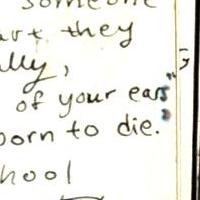 someone
art, they
lly,
of your ears"
born to die.
hool